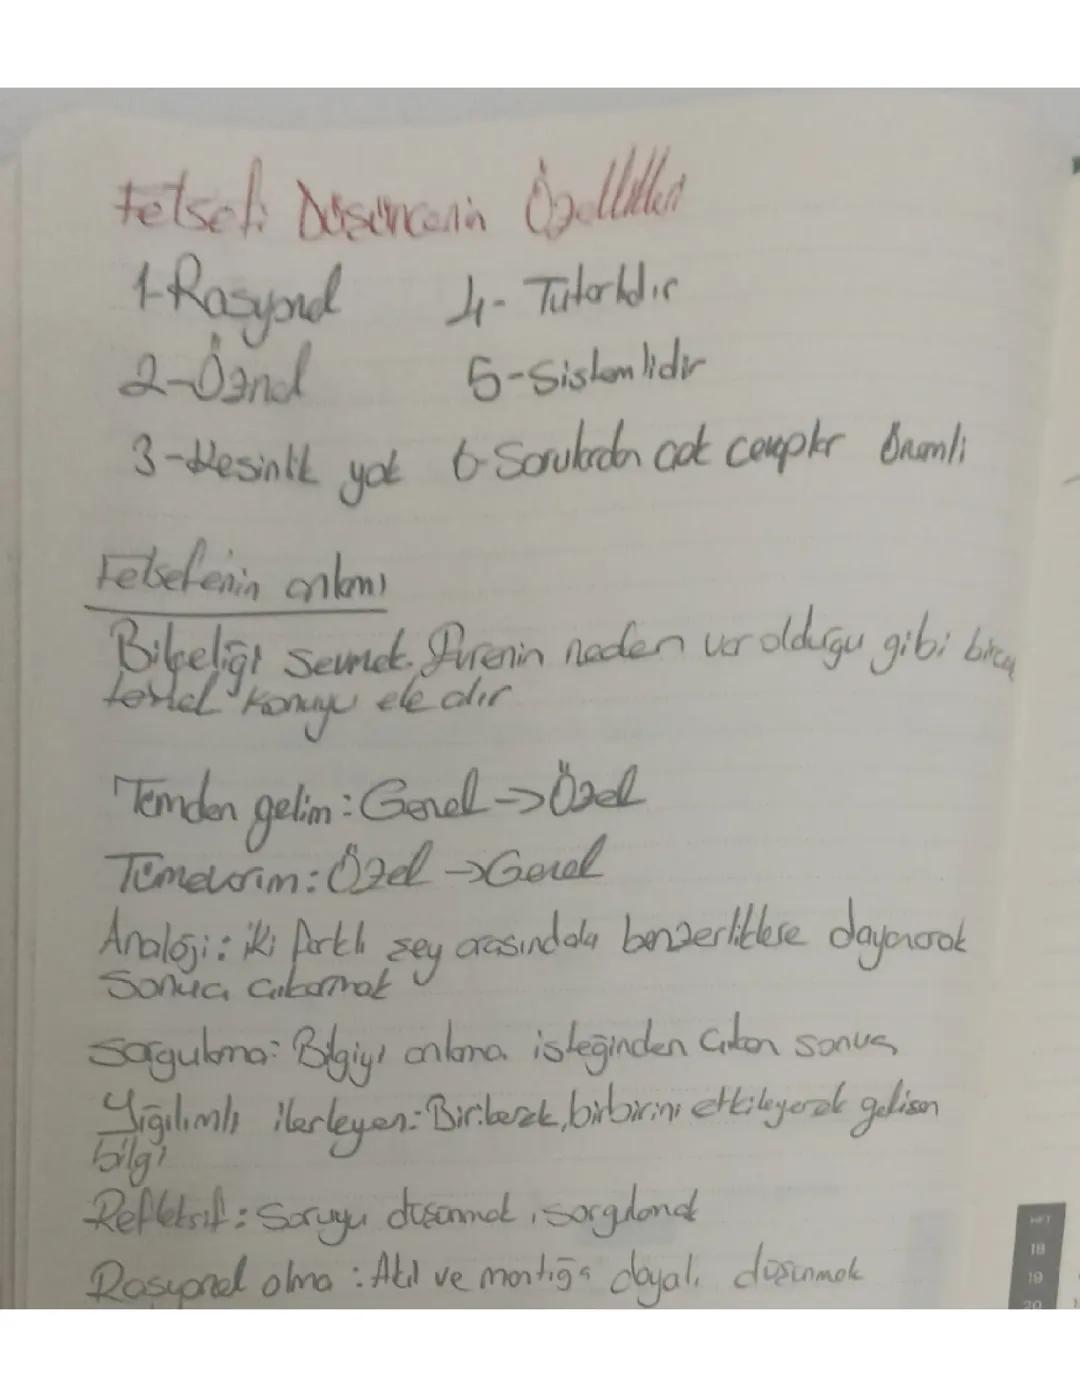 Felsefi Düşüncenin Özellikleri
1-Rasyonel 4- Tutarlıdır
2-Öznel 5-Sistemlidir
3-Kesinlik yok 6-Sorulardan çok cevaplar önemli
Felsefenin anlamı
Bilgeliği sevmek. Evrenin neden var olduğu gibi birçok
temel konuyu ele alır
Tümden gelim: Genel → Özel
Tümevarım: Özel → Genel
Analoji: iki farklı şey arasındaki benzerliklere dayanarak
sonuç çıkarmak
Sorgulama: Bilgiyi anlama isteğinden çıkan sonuç
Yığılımlı ilerleyen: Birikerek, birbirini etkileyerek gelişen
bilgi
Refleksif: Soruyu düşünmek, sorgulamak
Rasyonel olma: Akıl ve mantığa dayalı düşünmek
18
19
20